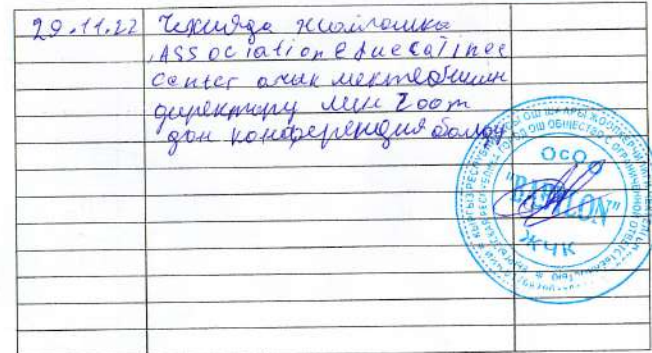 29.11.22 Чехияда жайгашка
Association Educatinee
Center ачык мектебинин
директору мин Zoom
дон конференция болду
ОсОО
"BABYLON"
ЖЧК